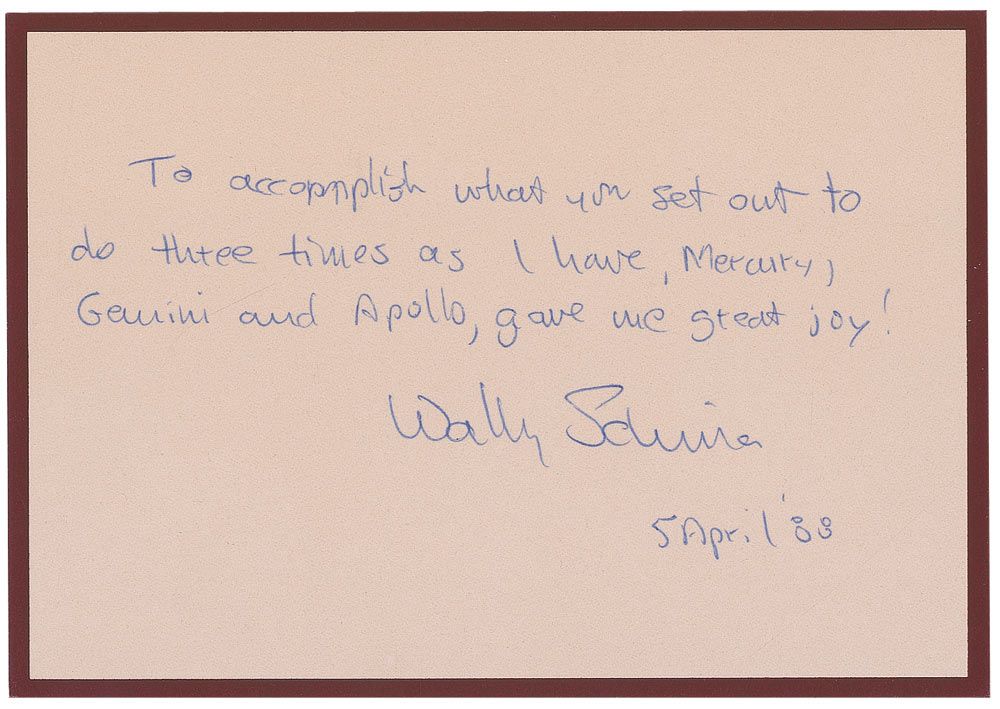 To accomplish what you set out to
do three times as I have, Mercury,
Gemini and Apollo, gave me great joy!
Wally Schirra
5 April '88